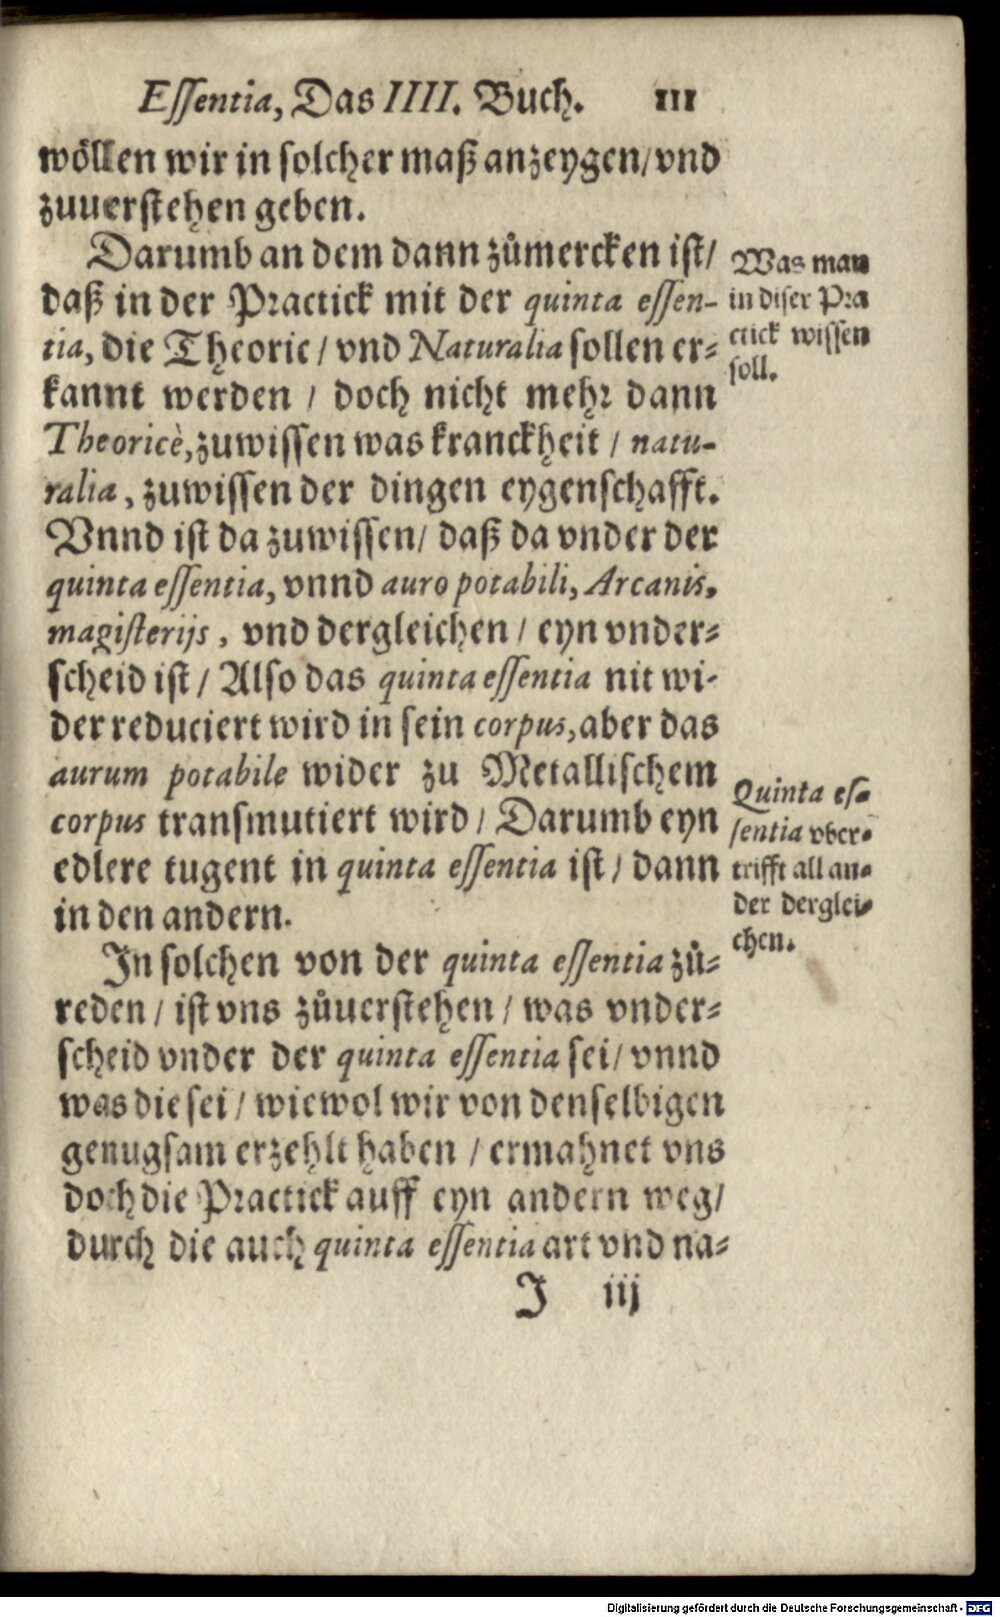 Essentia, Das IIII. Buch. 111
wöllen wir in solcher maß anzeygen/ vnd
zuuerstehen geben.
Darumb an dem dann zůmercken ist/
daß in der Practick mit der quinta essen-
tia, die Theoric / vnd Naturalia sollen er-
kannt werden / doch nicht mehr dann
Theoricè, zuwissen was kranckheit / natu-
ralia, zuwissen der dingen eygenschafft.
Vnnd ist da zuwissen/ daß da vnder der
quinta essentia, vnnd auro potabili, Arcanis.
magisterijs, vnd dergleichen / eyn vnder-
scheid ist / Also das quinta essentia nit wi-
der reduciert wird in sein corpus, aber das
aurum potabile wider zu Metallischem
corpus transmutiert wird / Darumb eyn
edlere tugent in quinta essentia ist / dann
in den andern.
In solchen von der quinta essentia zů-
reden / ist vns zůuerstehen / was vnder-
scheid vnder der quinta essentia sei/ vnnd
was die sei / wiewol wir von denselbigen
genugsam erzehlt haben / ermahnet vns
doch die Practick auff eyn andern weg/
durch die auch quinta essentia art vnd na-
I iij
Was man
in diser Pra
ctick wissen
soll.
Quinta es-
sentia vber-
trifft all an-
der derglei-
chen.
Digitalisierung gefördert durch die Deutsche Forschungsgemeinschaft - DFG